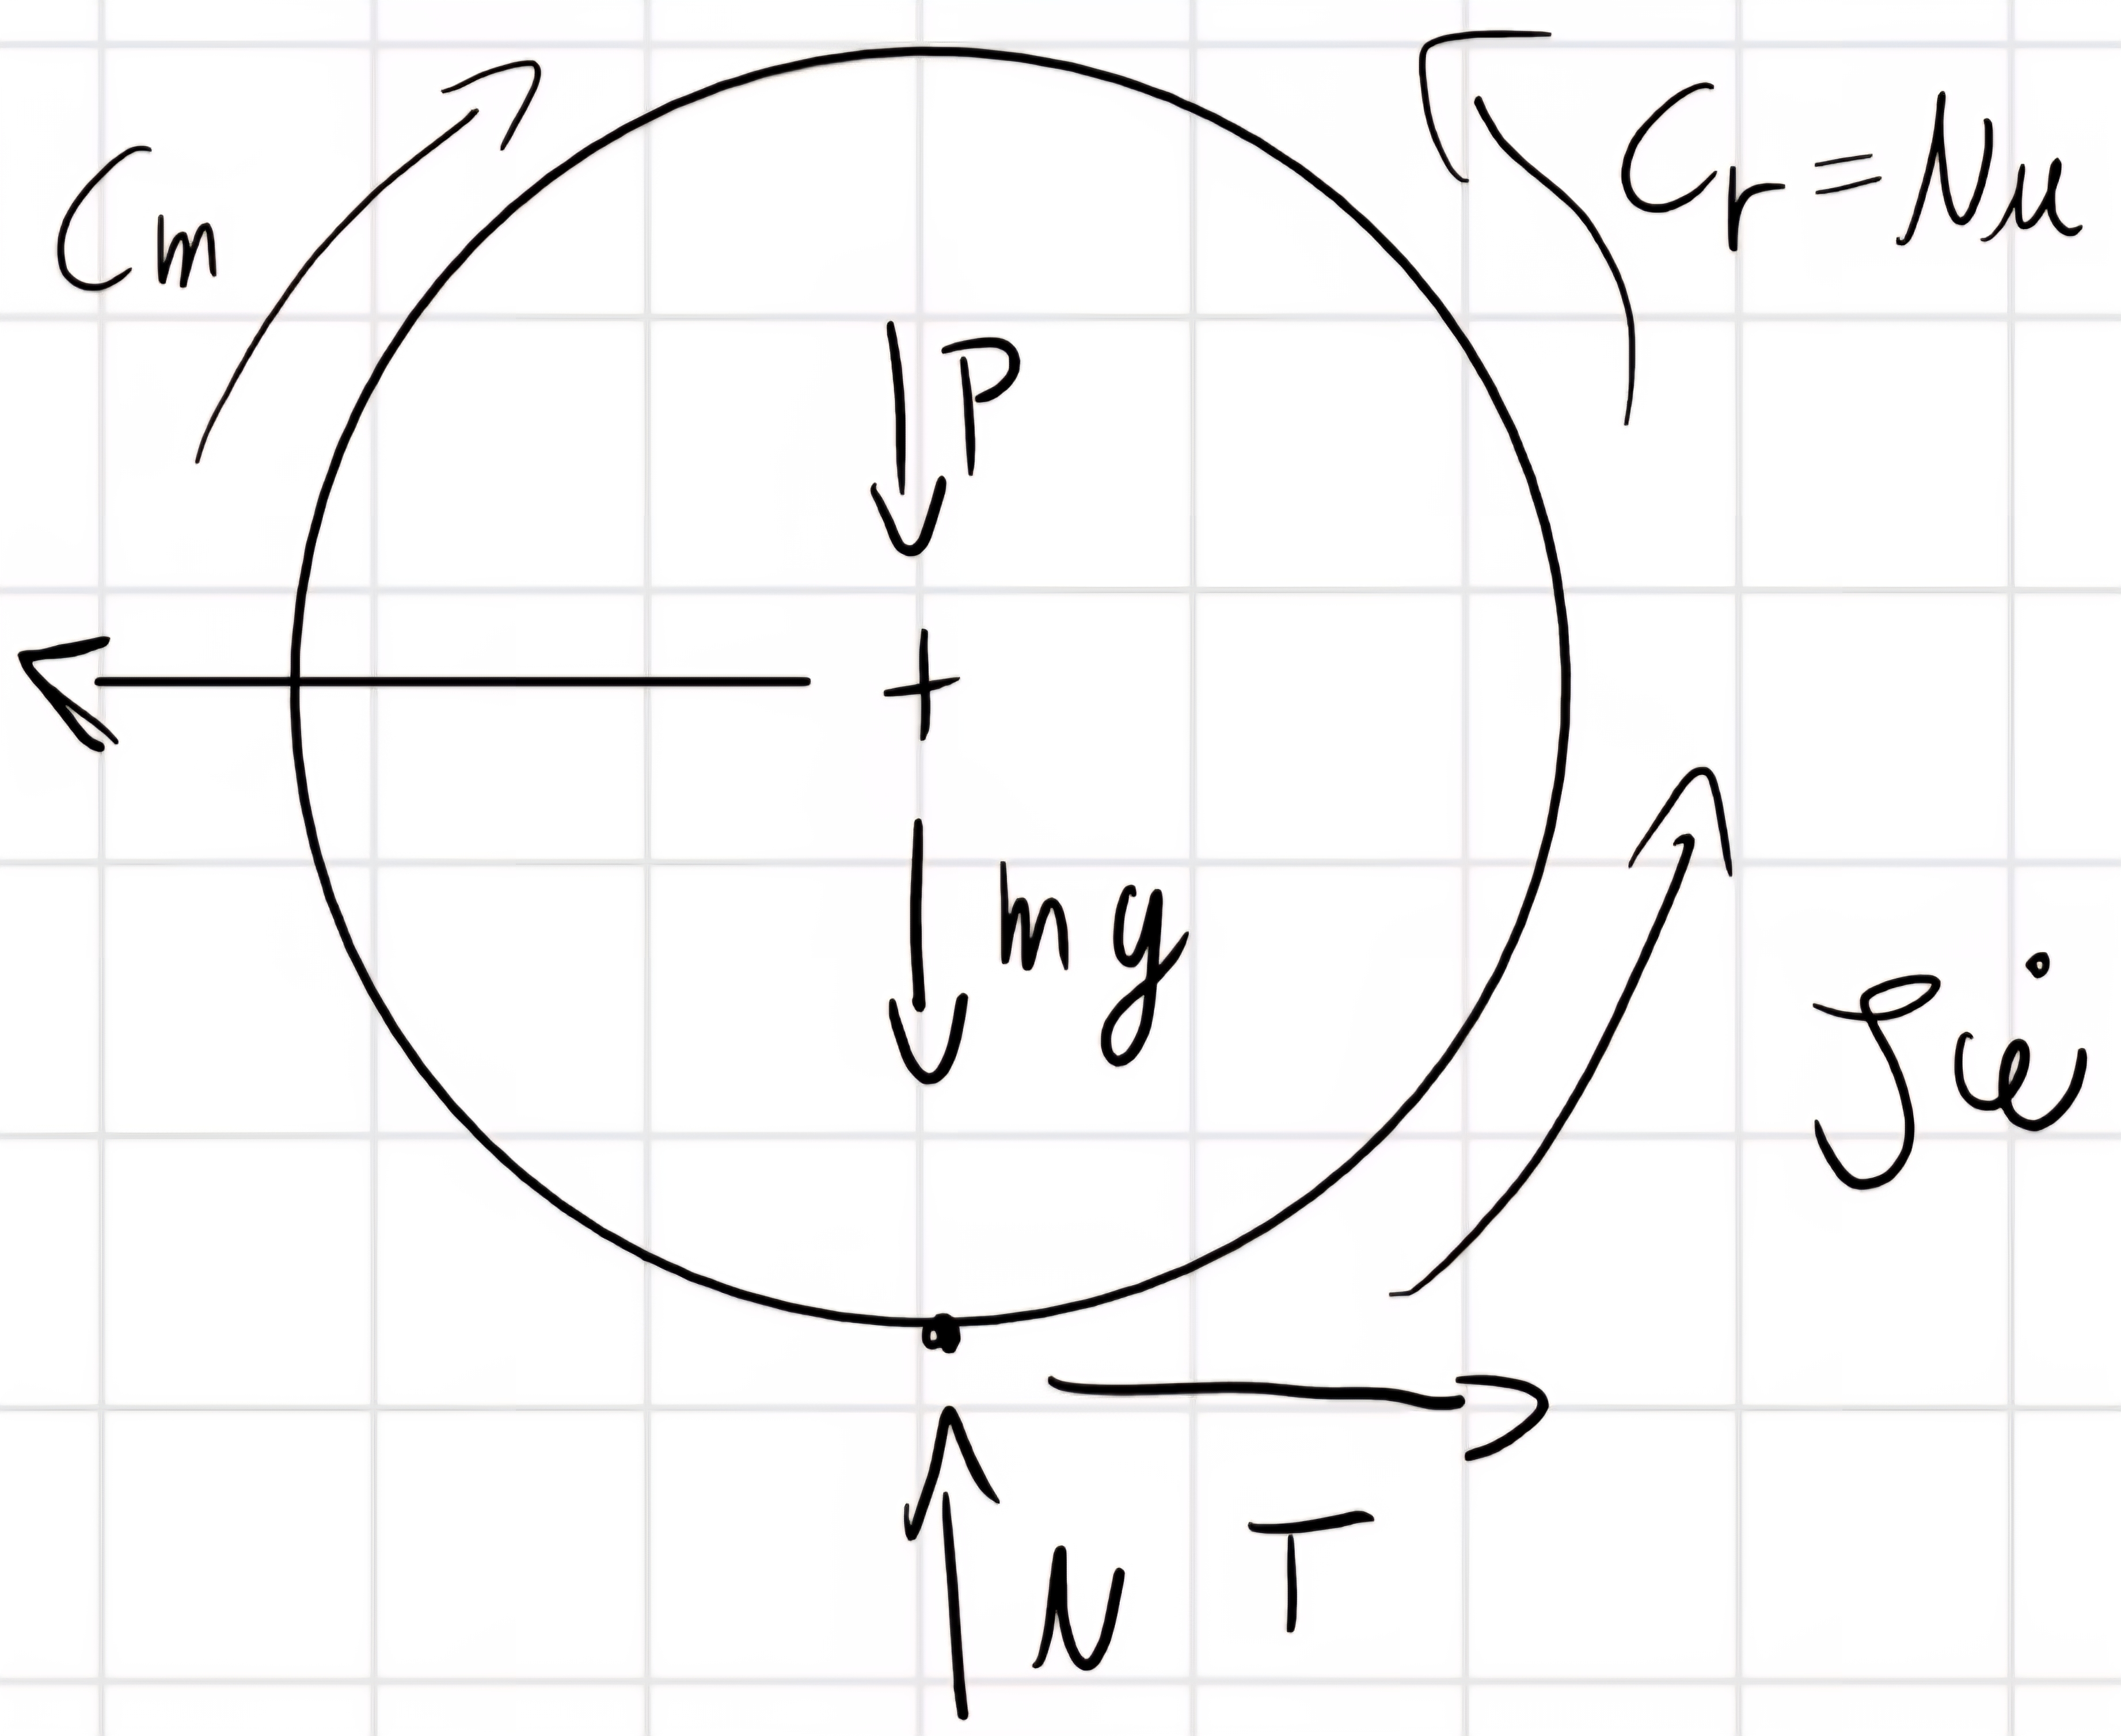 Cm
Cr = Nu
P
mg
Jω̇
N
T